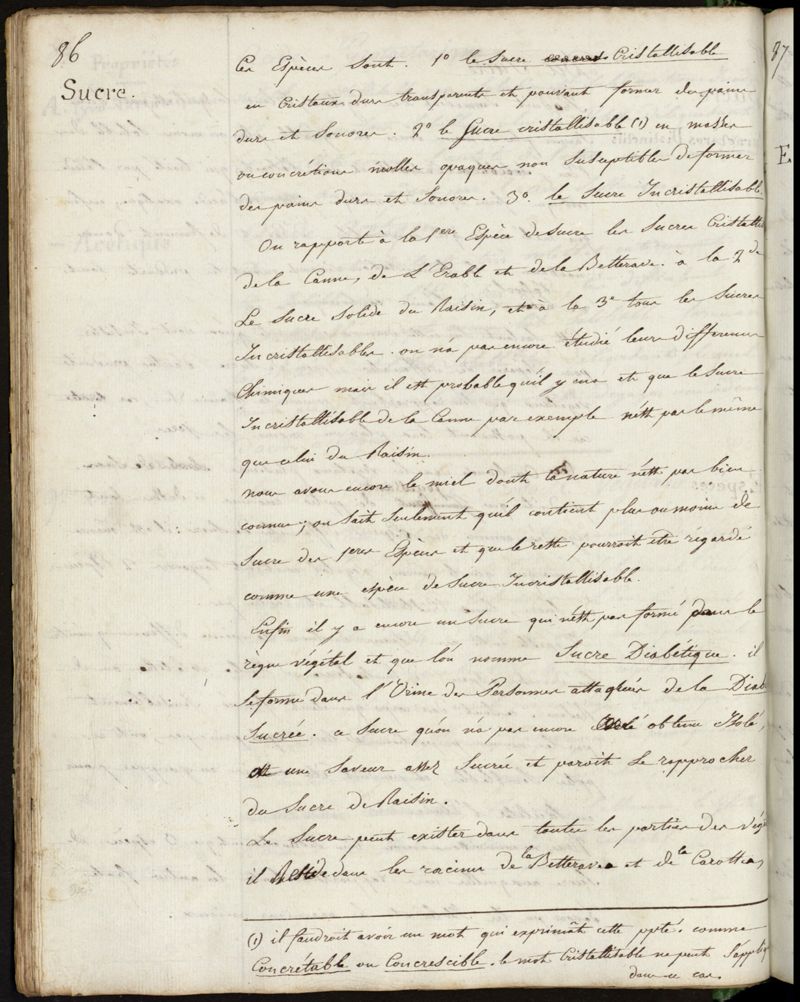 86
Sucre.
Ces Espèces sont. 1º le Sucre Cristallisable
en Cristaux durs transparents et pouvant former des pains
durs et Sonores. 2º le Sucre cristallisable (1) en masses
ou concrétions molles opaques non Susceptibles de former
des pains durs et Sonores. 3º. le Sucre Incristallisable
On rapporte à la 1ere Espèce de Sucre les Sucres Cristallis
de la Canne, de L'Erable et de la Betterave. à la 2de
Le Sucre Solide du Raisin, et à la 3e tous les Sucres
Incristallisables. on n'a pas encore étudié leurs differences
Chimiques mais il est probable qu'il y en a et que le Sucre
Incristallisable de la Canne par exemple n'est pas le même
que celui du Raisin.
nous avons encore le miel dont la nature n'est pas bien
connue; on Sait Seulement qu'il contient plus ou moins de
Sucre des 1eres Espèces et que le reste pourroit être régardé
comme une espèce de Sucre Incristallisable.
Enfin il y a encore un Sucre qui n'est pas formé dans le
regne végétal et que l'on nomme Sucre Diabétique. il
se forme dans l'Urine des Personnes attaquées de la Diab
Sucrée. ce Sucre qu'on n'a pas encore obtenu Isolé,
a une Saveur assez Sucrée et paroit se rapprocher
du Sucre de Raisin.
Le Sucre peut exister dans toutes les parties des végé
il Réside dans les racines de la Betterave et de la Carotte,
(1) il faudroit avoir un mot qui exprimât cette ppté. comme
Concrétable ou Concrescible. le mot Cristallisable ne peut S'appliq
dans ce cas.
87
E